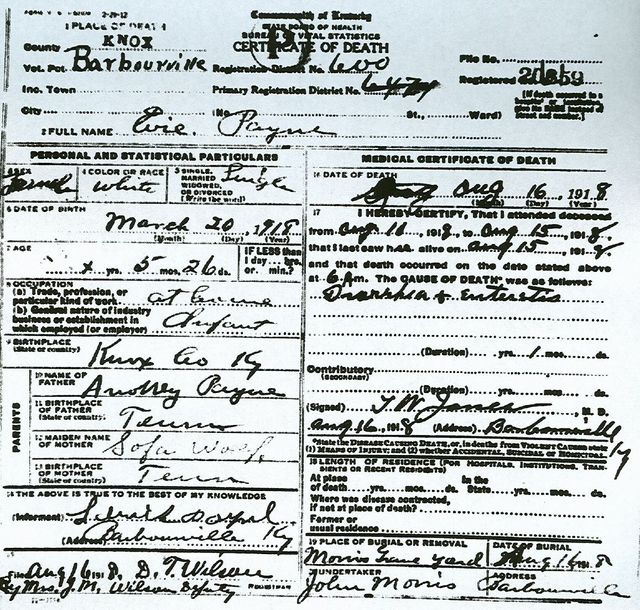 2-29-12
1 PLACE OF DEATH
County KNOX
Vot. Pct Barbourville
Inc. Town
City
Commonwealth of Kentucky
STATE BOARD OF HEALTH
BUREAU OF VITAL STATISTICS
CERTIFICATE OF DEATH
Registration District No. 600
Primary Registration District No.
(No. St., Ward)
File No.
Registered
[If death occurred in a hospital or institution, give its NAME instead of street and number.]
2 FULL NAME Evie Payne
PERSONAL AND STATISTICAL PARTICULARS
3 SEX Female
4 COLOR OR RACE White
5 SINGLE, MARRIED, WIDOWED, OR DIVORCED (Write the word) Single
6 DATE OF BIRTH
March 20, 1918
(Month) (Day) (Year)
7 AGE
x yrs. 5 mos. 26 ds.
IF LESS than 1 day... hrs. or... min.?
8 OCCUPATION
(a) Trade, profession, or particular kind of work at home
(b) General nature of industry business or establishment in which employed (or employer) Infant
9 BIRTHPLACE
(State or country) Knox Co Ky
PARENTS
10 NAME OF FATHER Audley Payne
11 BIRTHPLACE OF FATHER (State or country) Tenn
12 MAIDEN NAME OF MOTHER Sofa
13 BIRTHPLACE OF MOTHER (State or country) Tenn
14 THE ABOVE IS TRUE TO THE BEST OF MY KNOWLEDGE
(Informant)
(Address) Barbourville Ky
15
Filed Aug 16 1918. D. T. Wilson
By Mrs. J. M. Wilson Deputy REGISTRAR
MEDICAL CERTIFICATE OF DEATH
16 DATE OF DEATH
Aug 16, 1918
(Month) (Day) (Year)
17 I HEREBY CERTIFY, That I attended deceased
from Aug 11, 1918, to Aug 15, 1918,
that I last saw her alive on Aug 15, 1918,
and that death occurred on the date stated above
at 6 Am. The CAUSE OF DEATH* was as follows:
Diarrhia & enteretis
(Duration) yrs. 1 mos. ds.
Contributory
(SECONDARY)
(Duration) yrs. mos. ds.
(Signed) T. W. Jones, M. D.
Aug 16, 1918 (Address) Barbourville Ky
*State the DISEASE CAUSING DEATH, or, in deaths from VIOLENT CAUSES state (1) MEANS OF INJURY; and (2) whether ACCIDENTAL, SUICIDAL or HOMICIDAL
18 LENGTH OF RESIDENCE (FOR HOSPITALS, INSTITUTIONS, TRANSIENTS OR RECENT RESIDENTS)
At place of death yrs. mos. ds. In the State yrs. mos. ds.
Where was disease contracted, if not at place of death?
Former or usual residence
19 PLACE OF BURIAL OR REMOVAL
Morris Grave Yard
DATE OF BURIAL
Aug 16 1918
20 UNDERTAKER
John Morris
ADDRESS
Barbourville